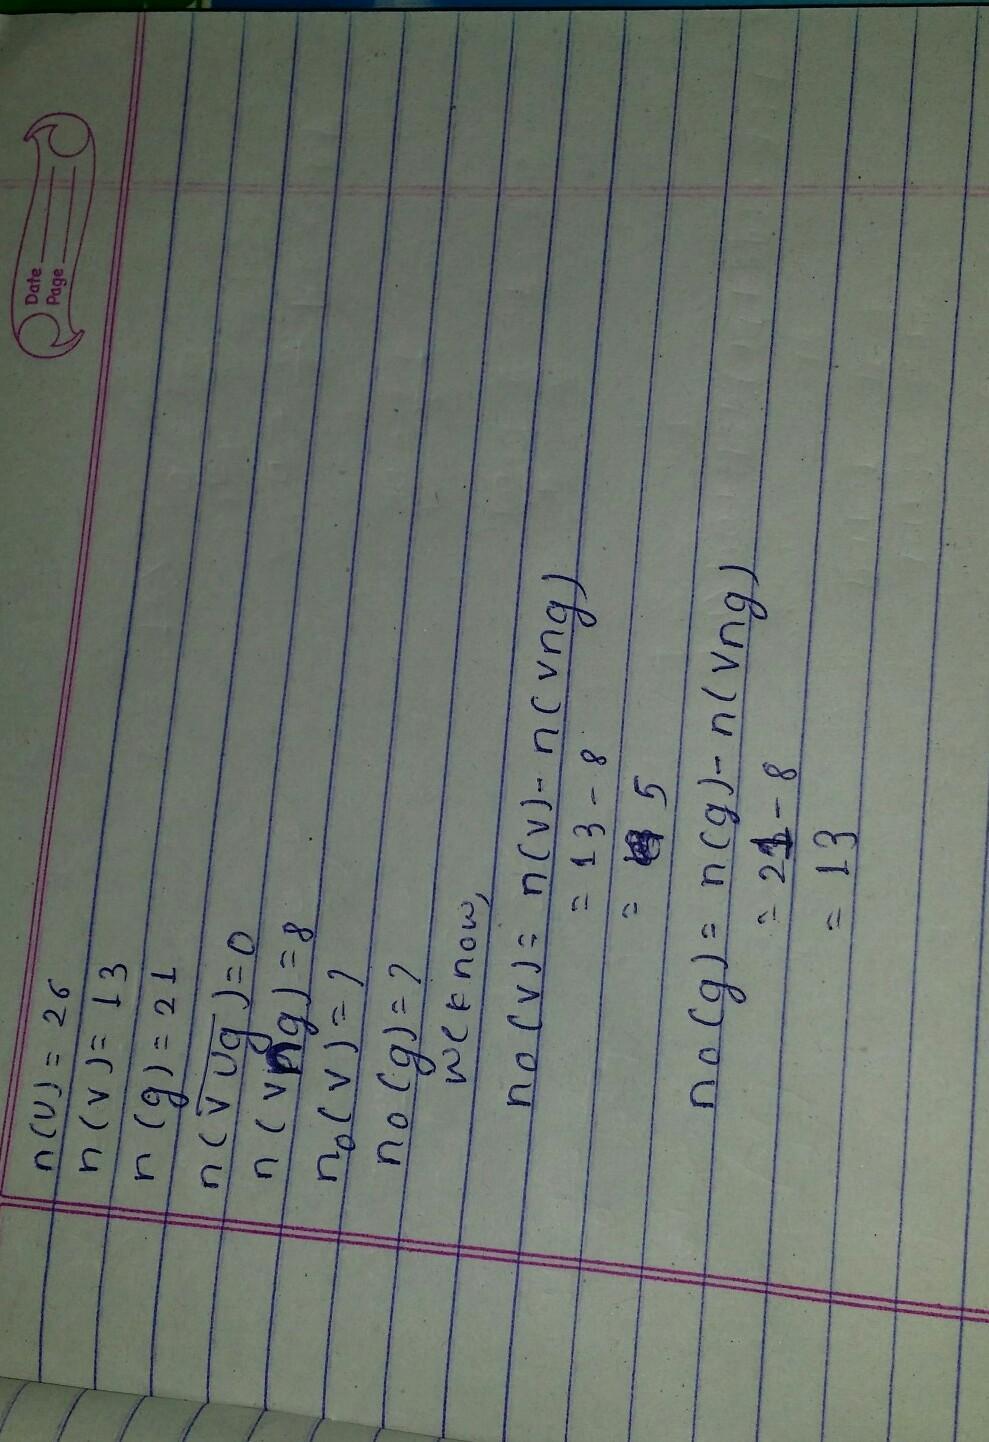 Date
Page
n(U) = 26
n(v) = 13
n(g) = 21
n(\overline{v∪g}) = 0
n(v∩g) = 8
n₀(v) = ?
n₀(g) = ?
we know,
n₀(v) = n(v) - n(v∩g)
= 13 - 8
= 5
n₀(g) = n(g) - n(v∩g)
= 21 - 8
= 13